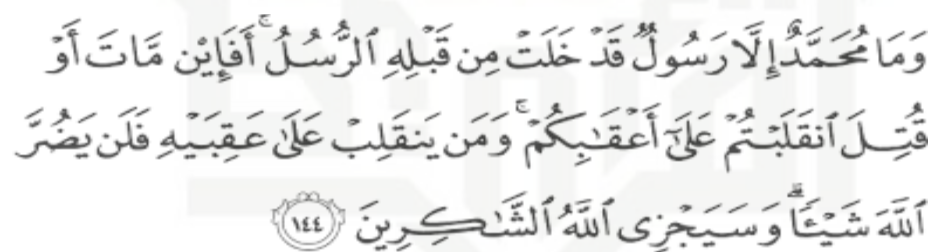 وَمَا مُحَمَّدٌ إِلَّا رَسُولٌ قَدْ خَلَتْ مِن قَبْلِهِ ٱلرُّسُلُ ۚ أَفَإِي۟ن مَّاتَ أَوْ
قُتِلَ ٱنقَلَبْتُمْ عَلَىٰٓ أَعْقَـٰبِكُمْ ۚ وَمَن يَنقَلِبْ عَلَىٰ عَقِبَيْهِ فَلَن يَضُرَّ
ٱللَّهَ شَيْـًٔا ۗ وَسَيَجْزِى ٱللَّهُ ٱلشَّـٰكِرِينَ ١٤٤